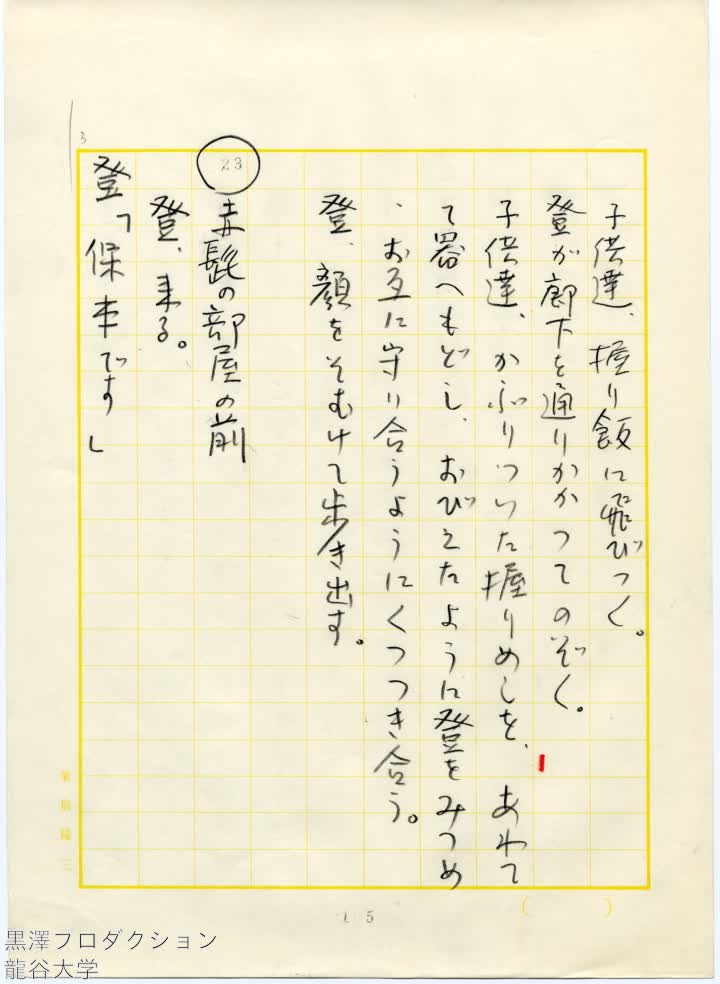 子供達、握り飯に飛びつく。
登が廊下を通りかかつてのぞく。
子供達、かぶりついた握りめしを、あわて
て器へもどし、おびえたように登をみつめ
、お互に守り合うようにくつつき合う。
登、顔をそむけて歩き出す。
23
赤髭の部屋の前
登、来る。
登「保本です」
3
15
( )
黒澤プロダクション
龍谷大学